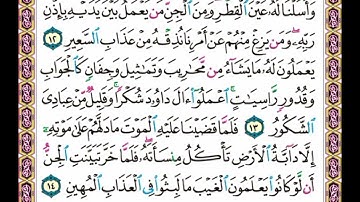 وَأَسَلْنَا لَهُۥ عَيْنَ ٱلْقِطْرِ وَمِنَ ٱلْجِنِّ مَن يَعْمَلُ بَيْنَ يَدَيْهِ بِإِذْنِ
رَبِّهِۦ وَمَن يَزِغْ مِنْهُمْ عَنْ أَمْرِنَا نُذِقْهُ مِنْ عَذَابِ ٱلسَّعِيرِ ١٢
يَعْمَلُونَ لَهُۥ مَا يَشَآءُ مِن مَّحَٰرِيبَ وَتَمَٰثِيلَ وَجِفَانٍ كَٱلْجَوَابِ
وَقُدُورٍ رَّاسِيَٰتٍ ٱعْمَلُوٓا۟ ءَالَ دَاوُۥدَ شُكْرًا وَقَلِيلٌ مِّنْ عِبَادِىَ
ٱلشَّكُورُ ١٣ فَلَمَّا قَضَيْنَا عَلَيْهِ ٱلْمَوْتَ مَا دَلَّهُمْ عَلَىٰ مَوْتِهِۦٓ
إِلَّا دَآبَّةُ ٱلْأَرْضِ تَأْكُلُ مِنسَأَتَهُۥ فَلَمَّا خَرَّ تَبَيَّنَتِ ٱلْجِنُّ
أَن لَّوْ كَانُوا۟ يَعْلَمُونَ ٱلْغَيْبَ مَا لَبِثُوا۟ فِى ٱلْعَذَابِ ٱلْمُهِينِ ١٤